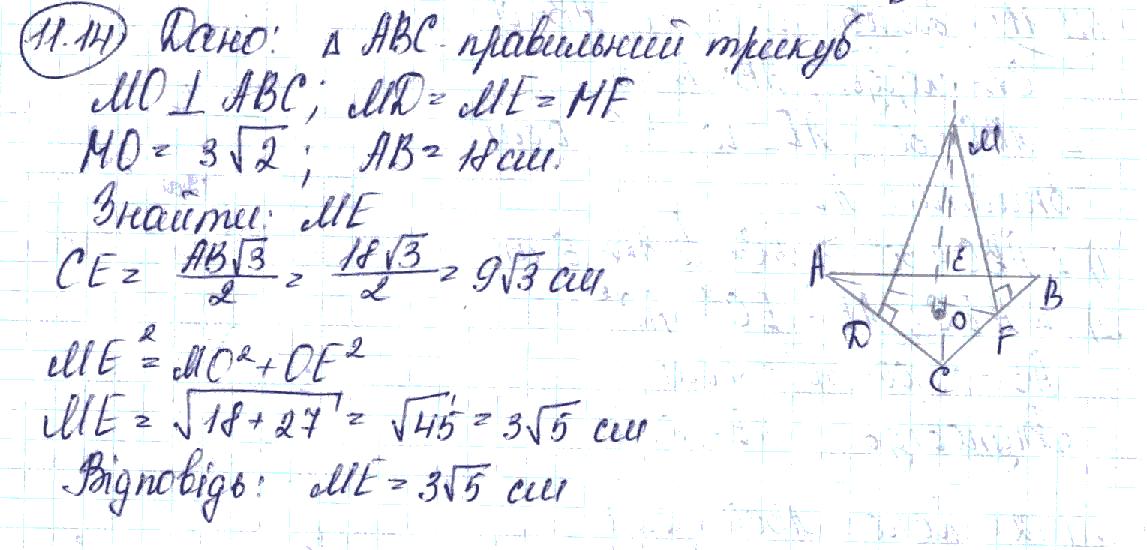 11.14 Дано: △ ABC правильний трикуб
MO ⊥ ABC; MD = ME = MF
MO = 3√2; AB = 18 см.
Знайти: ME
CE = AB√3/2 = 18√3/2 = 9√3 см
ME² = MO² + OE²
ME = √18 + 27 = √45 = 3√5 см
Відповідь: ME = 3√5 см
M
A E B
D O F
C